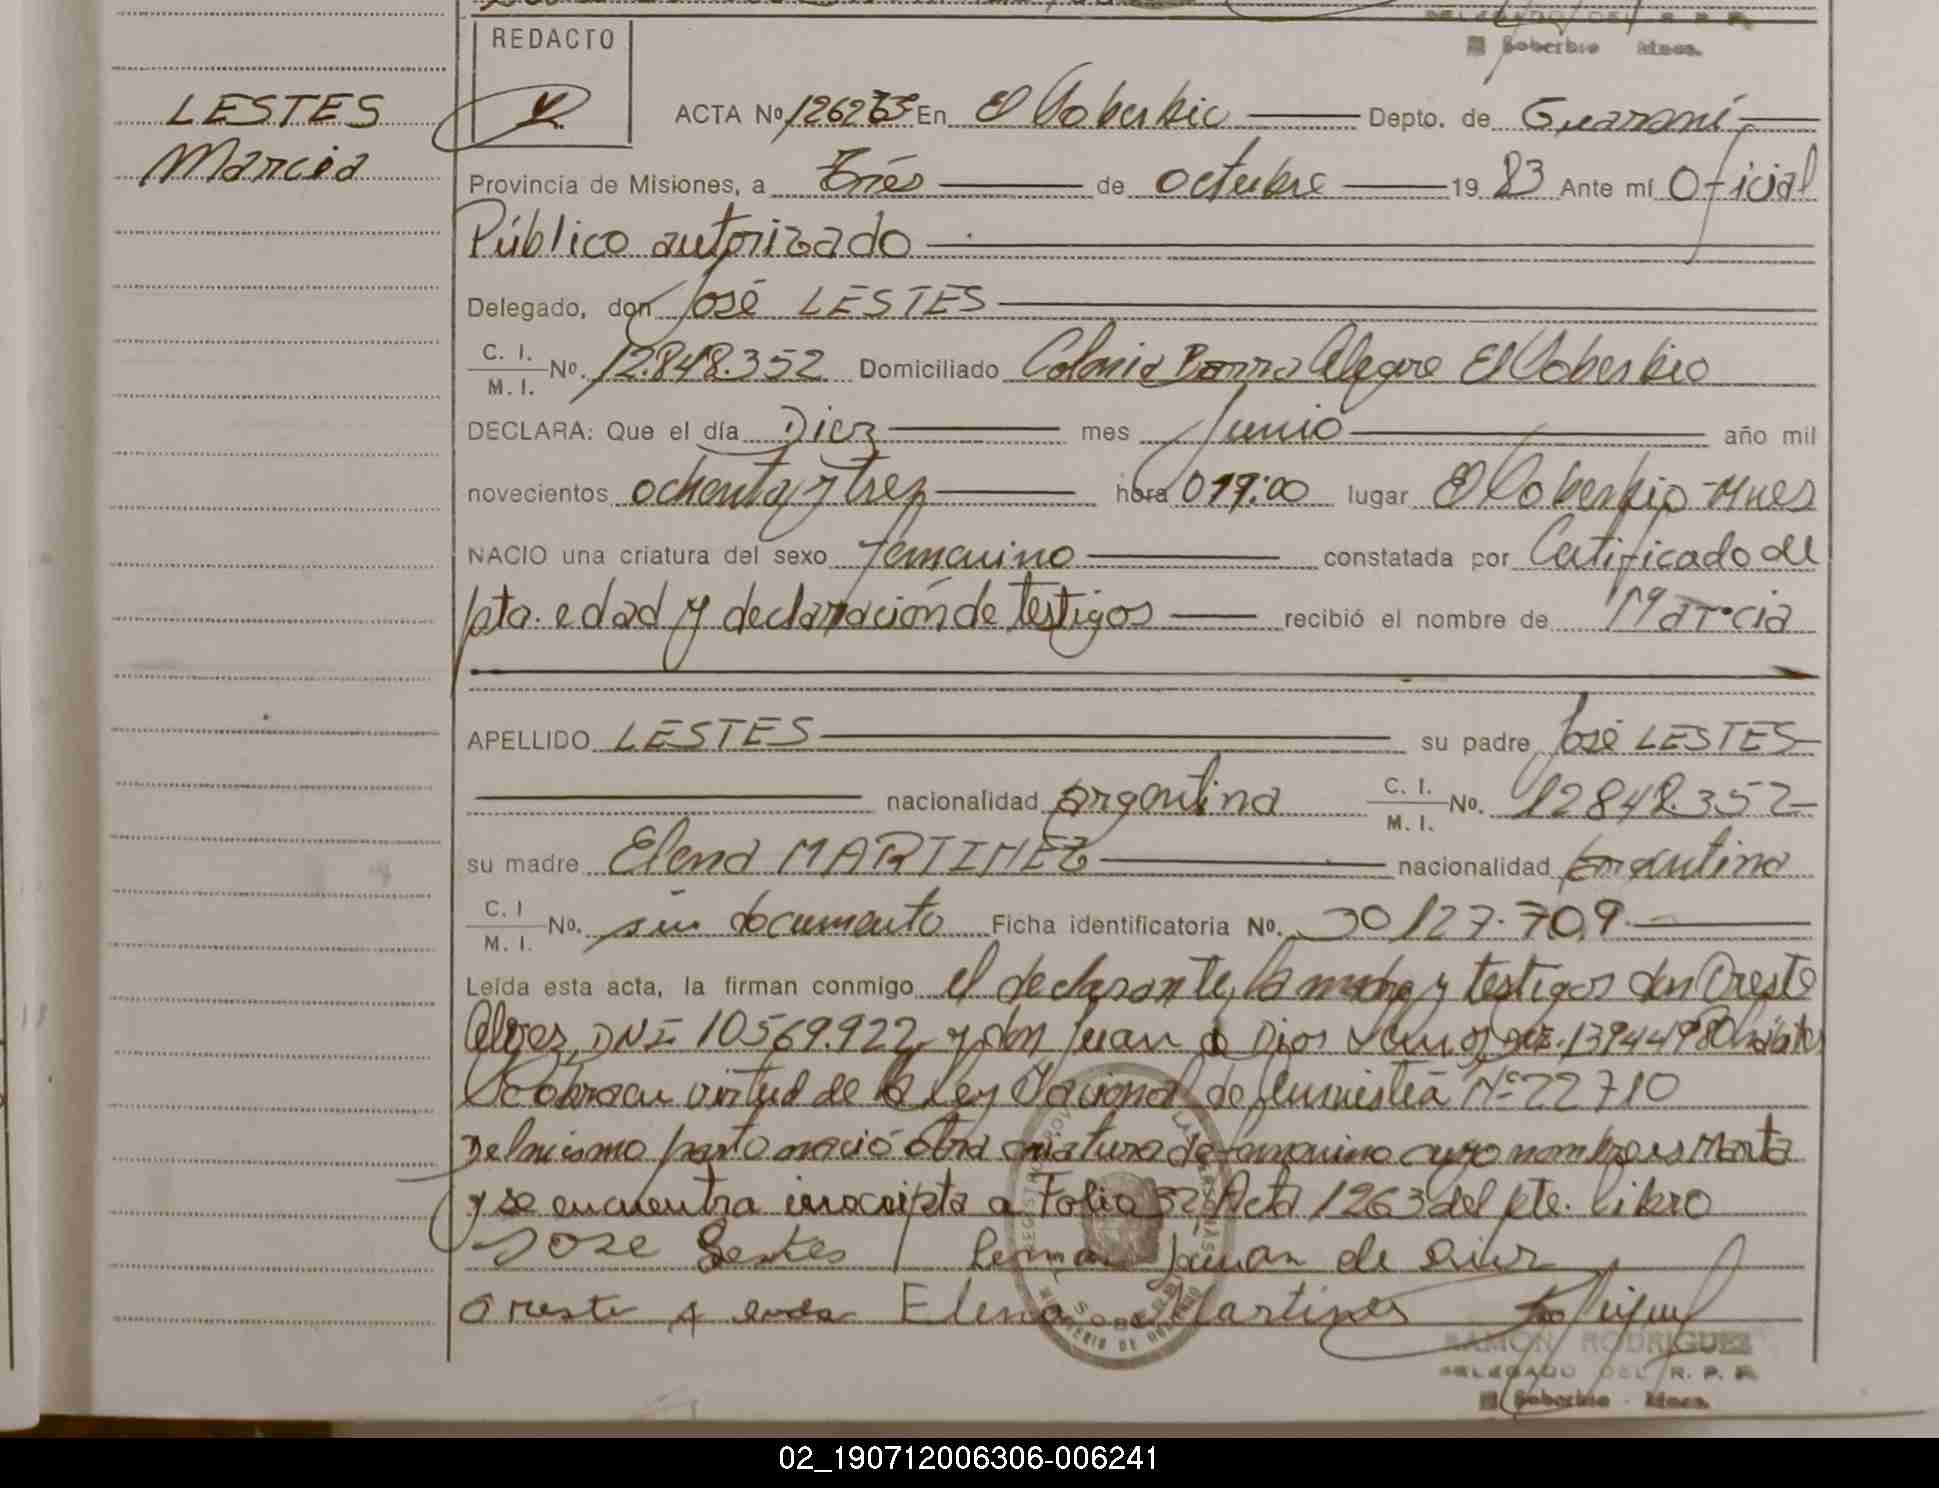 DELEGADO DEL R. P. P.
El Soberbio Mnes.
REDACTO
LESTES
Marcia
ACTA Nº 1262 En El Soberbio Depto. de Guaraní
Provincia de Misiones, a Trés de octubre 19 83 Ante mí Oficial
Público autorizado
Delegado, don José LESTES
C. I. / M. I. No. 12.848.352 Domiciliado Colonia Barra Alegre El Soberbio
DECLARA: Que el día Diez mes Junio año mil
novecientos ochenta y trez hora 019:00 lugar El Soberbio-Mnes
NACIO una criatura del sexo femenino constatada por Cetificado de
pta. edad y declaración de testigos recibió el nombre de Marcia
APELLIDO LESTES su padre José LESTES
nacionalidad argentina C. I. / M. I. No. 12848.352
su madre Elena MARTINEZ nacionalidad argentina
C. I / M. I. No. sin documento Ficha identificatoria No. 30127.709
Leída esta acta, la firman conmigo el declarante, la madre y testigos don Oreste
Alvez, DNI 10569.922 y don Juan de Dios 13944980
virtud de la Ley Nacional de Nº 22710
Del mismo parto nació otra criatura de femenino cuyo nombre es Marta
y se encuentra inscripta a Folio 32 Acta 1263 del pte. libro
Jose Lestes Juan de Dios
Oreste Elena Martinez
RAMON RODRIGUEZ
DELEGADO DEL R. P. P.
El Soberbio - Mnes.
02_190712006306-006241